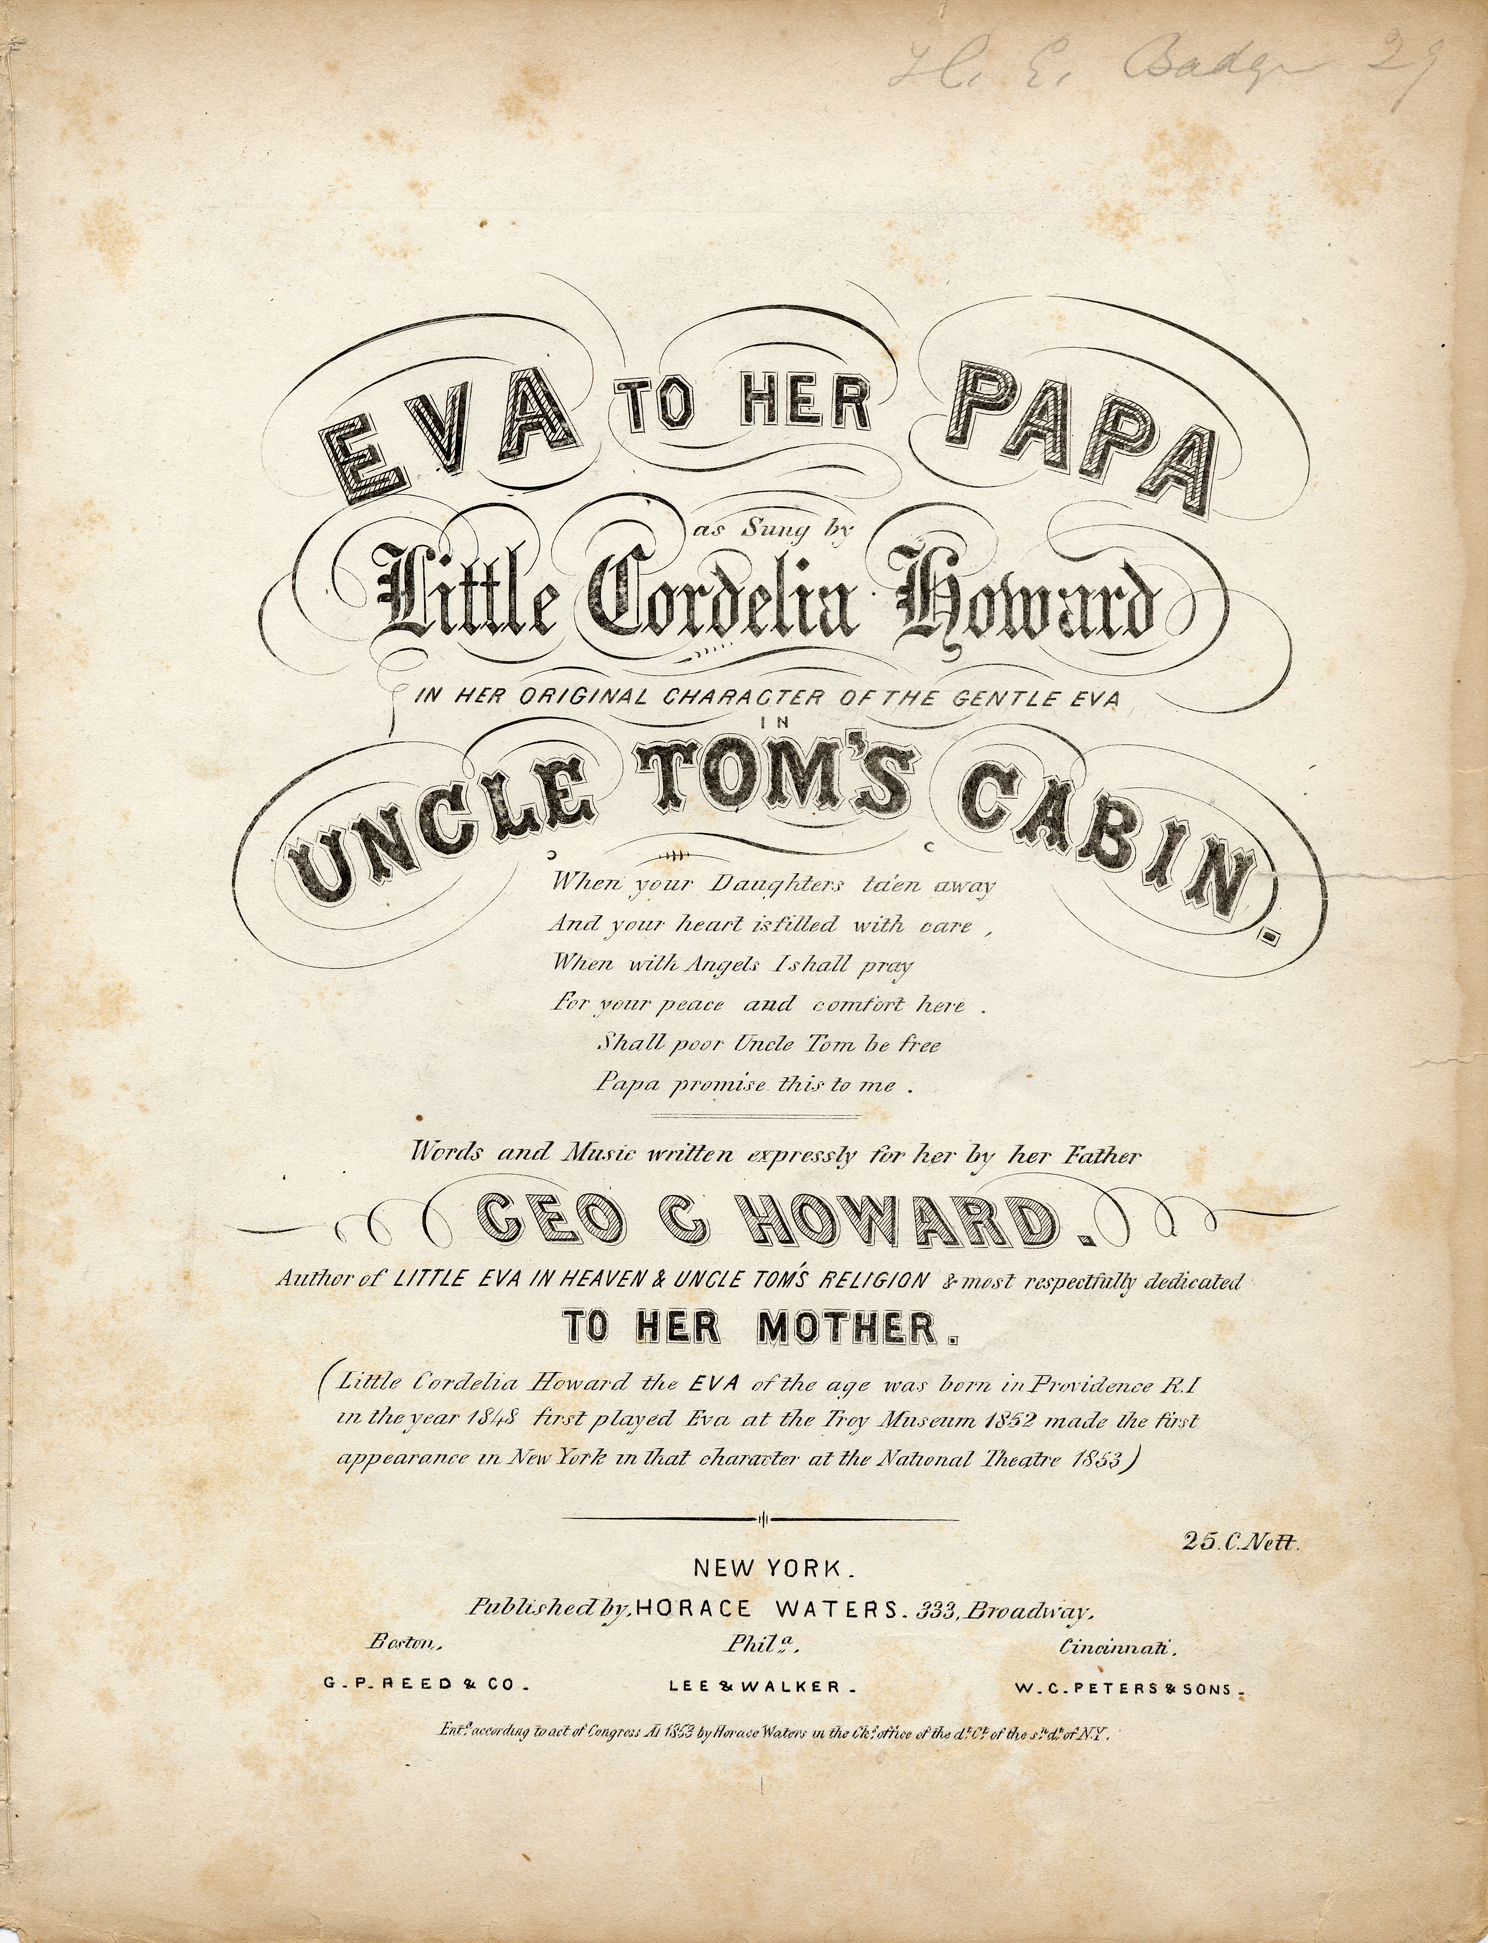 H. E. Badger 29
EVA TO HER PAPA
as Sung by
Little Cordelia Howard
IN HER ORIGINAL CHARACTER OF THE GENTLE EVA
IN
UNCLE TOM'S CABIN.
When your Daughters ta'en away
And your heart is filled with care,
When with Angels I shall pray
For your peace and comfort here.
Shall poor Uncle Tom be free
Papa promise this to me.
Words and Music written expressly for her by her Father
GEO C HOWARD.
Author of LITTLE EVA IN HEAVEN & UNCLE TOM'S RELIGION & most respectfully dedicated
TO HER MOTHER.
(Little Cordelia Howard the EVA of the age was born in Providence R.I
in the year 1848 first played Eva at the Troy Museum 1852 made the first
appearance in New York in that character at the National Theatre 1853)
25.C.Nett.
NEW YORK.
Published by, HORACE WATERS. 333, Broadway.
Boston. Phila. Cincinnati.
G.P. REED & CO. LEE & WALKER. W.C. PETERS & SONS.
Entd. according to act of Congress AD 1853 by Horace Waters in the Clks. office of the dt. Ct. of the sn. dt. of N.Y.